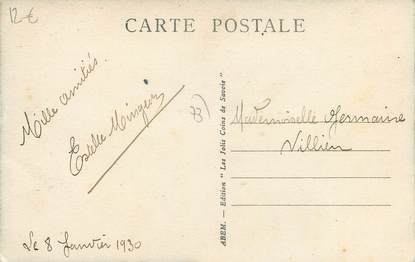 12 €
CARTE POSTALE
Mille amitiés.
Estelle
73)
Mademoiselle Germaine
Villien
ABEM. - Edition "Les Jolis Coins de Savoie"
Le 8 Janvier 1930